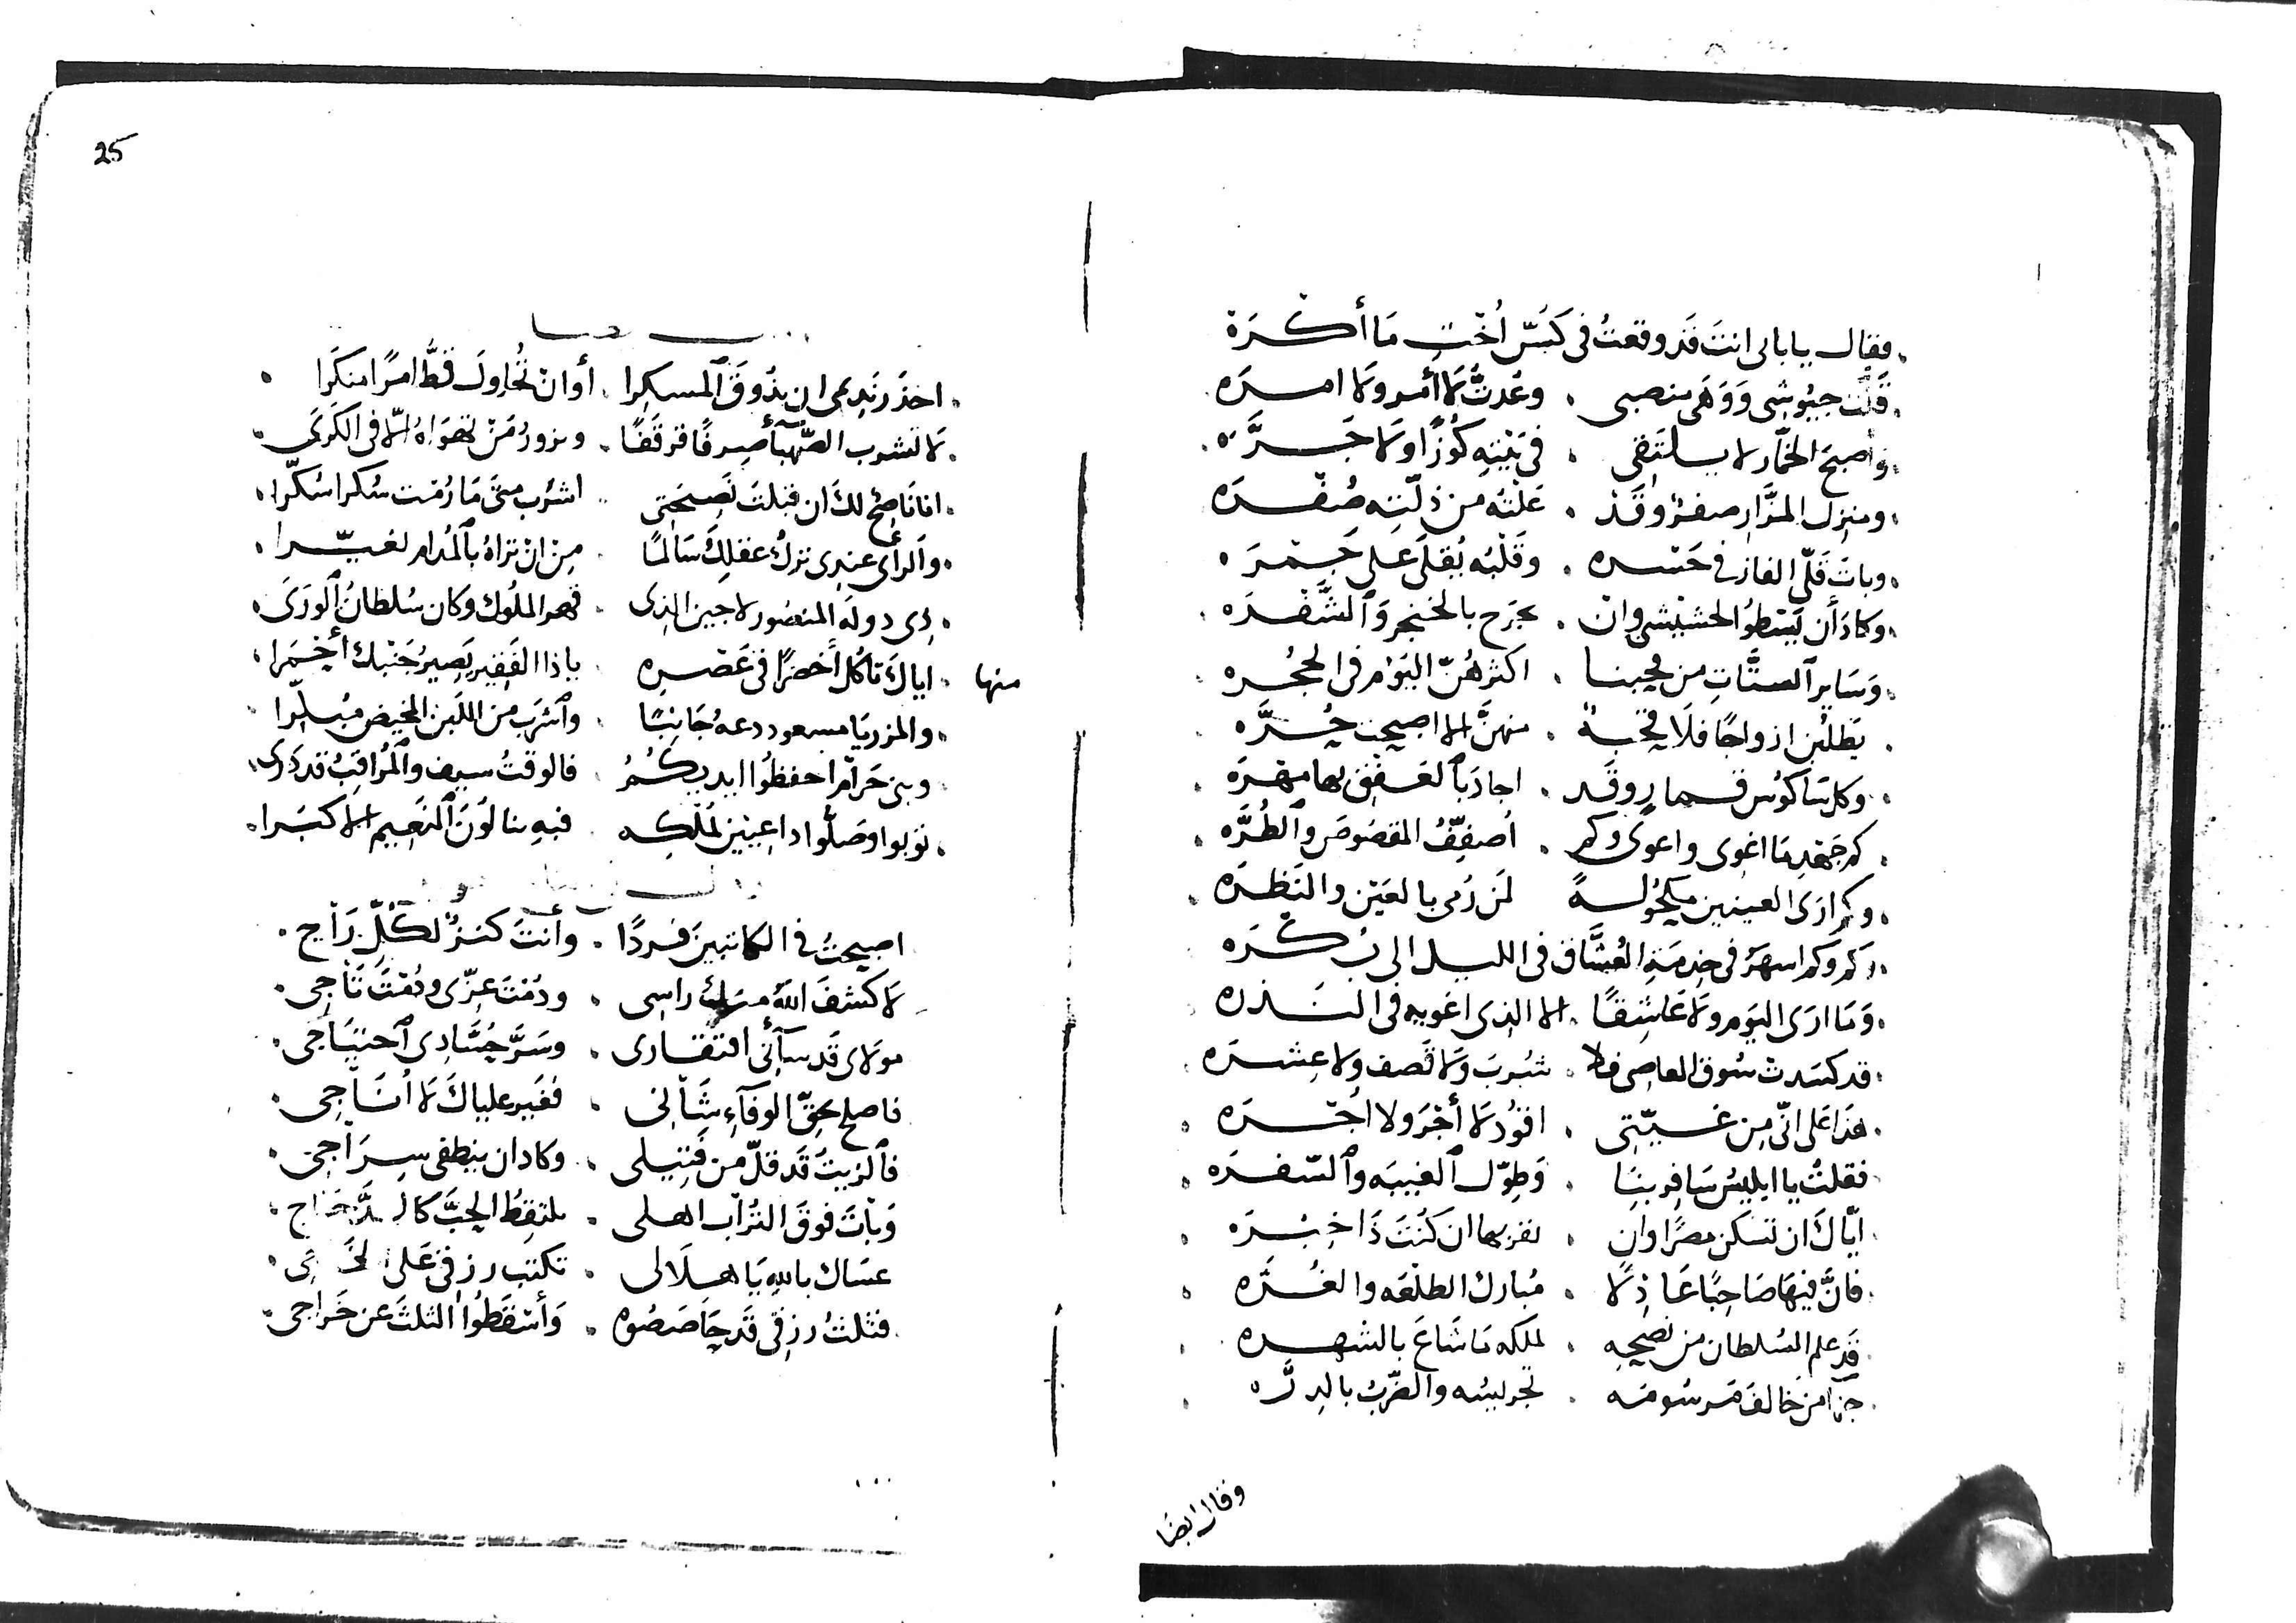 فقال يا بابى انت قد وقعت فى كسّ اخت ما أكره
قلّت جيوشى ووهى منصبى وعدت لا أمر ولا امره
واصبح الخمار لا يلتقى فى بيته كوزا ولا جرّه
ومنزل المزّار صفر وقد علته من ذلّته صفره
وبات قلّى الفار فى حسره وقلبه يقلى على جمره
وكاد أن يسطو الحشيشى وان يجرح بالخنجر والشفره
وساير الستّات من محبنا اكثرهنّ اليوم فى الحجره
يطلبن ازواجا فلا قحبة منهنّ الا اصبحت حرّه
وكلنا كوس قمار وقد اجاد بالعفق بها مهره
كم جهد ما اغوى واعوى وكم اصفّف المقصوص والطرّه
وكم ارى العينين مكحولة لمن رمى بالعين والنظره
وكم وكم اسهر فى خدمة العشّاق فى الليل الى بكره
وما ارى اليوم ولا عاشقا الا الذى اغويه فى الندره
قد كسدت سوق المعاصى فلا شرب ولا قصف ولا عشره
هذا على انّى من غبتى اقود لا أجر ولا اجره
فقلت يا ابليس سافر بنا وطوّل الغيبه والسفره
ايّاك ان تسكن مصرا وان تقربها ان كنت ذا خبره
فانّ فيها صاحبا عاذلا مبارك الطلعه والغرّه
قد علم السلطان من نصحه لملكه ما شاع بالشهره
جزا من خالف مرسومه تجريسه والضرب بالدرّه
وقال ايضا
25
احذر نديمى ان تذوق المسكرا أو ان تحاول قطّ امرا منكرا
لا تشرب الصهبآ صرفا قرقفا وتزور من تهواه الّا فى الكرى
انا ناصح لك ان قبلت نصيحتى اشرب متى ما رمت سكرا سكّرا
والرأى عندى ترك عقلك سالما من ان تراه بالمدام تغيّرا
ذى دولة المنصور لاجين الذى قهر الملوك وكان سلطان الورى
منها اياك تاكل أخضرا فى عصره ياذا الفقير يصير جنبك أحمرا
والمزر يا مسعود دعه جانبا واشرب من اللبن المخيض مبكّرا
وبنى حرام احفظوا ايديكم فالوقت سيف والمراقب قد درى
توبوا وصلّوا داعيين لملكه فبه تنالون النعيم الاكبرا
اصبحت فى الكاتبين فردا وأنت كنز لكلّ راج
لا كشف الله منك راسى ودمت عزّى ودمت تاجى
مولاى قد سآنى افتقارى وسرّ حسّادى احتياجى
فاصلح بحقّ الوفآء شانى فغير علياك لا اناجى
فالزيت قد قلّ من فتيلى وكاد ان ينطفى سراجى
وبات فوق التراب اهلى يلتقط الحبّ كالدّجاج
عساك بالله يا هلالى تكتب رزقى على
فثلث رزقى قد حاصصوه وأسقطوا الثلث عن خراجى